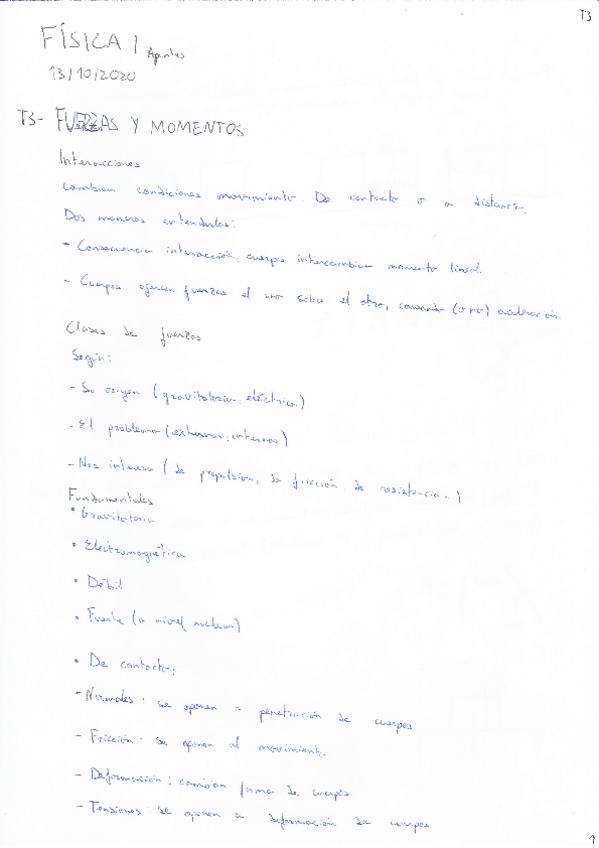 T3
FÍSICA I Apuntes
13/10/2020
T3- FUERZAS Y MOMENTOS
Interacciones
Cambian condiciones movimiento. De contacto o a distancia.
Dos maneras entenderlas:
- Consecuencia interacción, cuerpos intercambian momento lineal.
- Cuerpos ejercen fuerzas el uno sobre el otro, causando (o no) aceleración.
Clases de fuerzas
Según:
- Su origen (gravitatoria, eléctrica)
- El problema (externas, internas)
- Nos interesa (de propulsión, de fricción, de resistencia...)
Fundamentales
• Gravitatoria
• Electromagnética
• Débil
• Fuerte (a nivel nuclear)
• De contacto:
- Normales: se oponen a penetración de cuerpos
- Fricción: se oponen al movimiento.
- Deformación: cambian forma de cuerpos
- Tensiones: se oponen a deformación de cuerpos
1